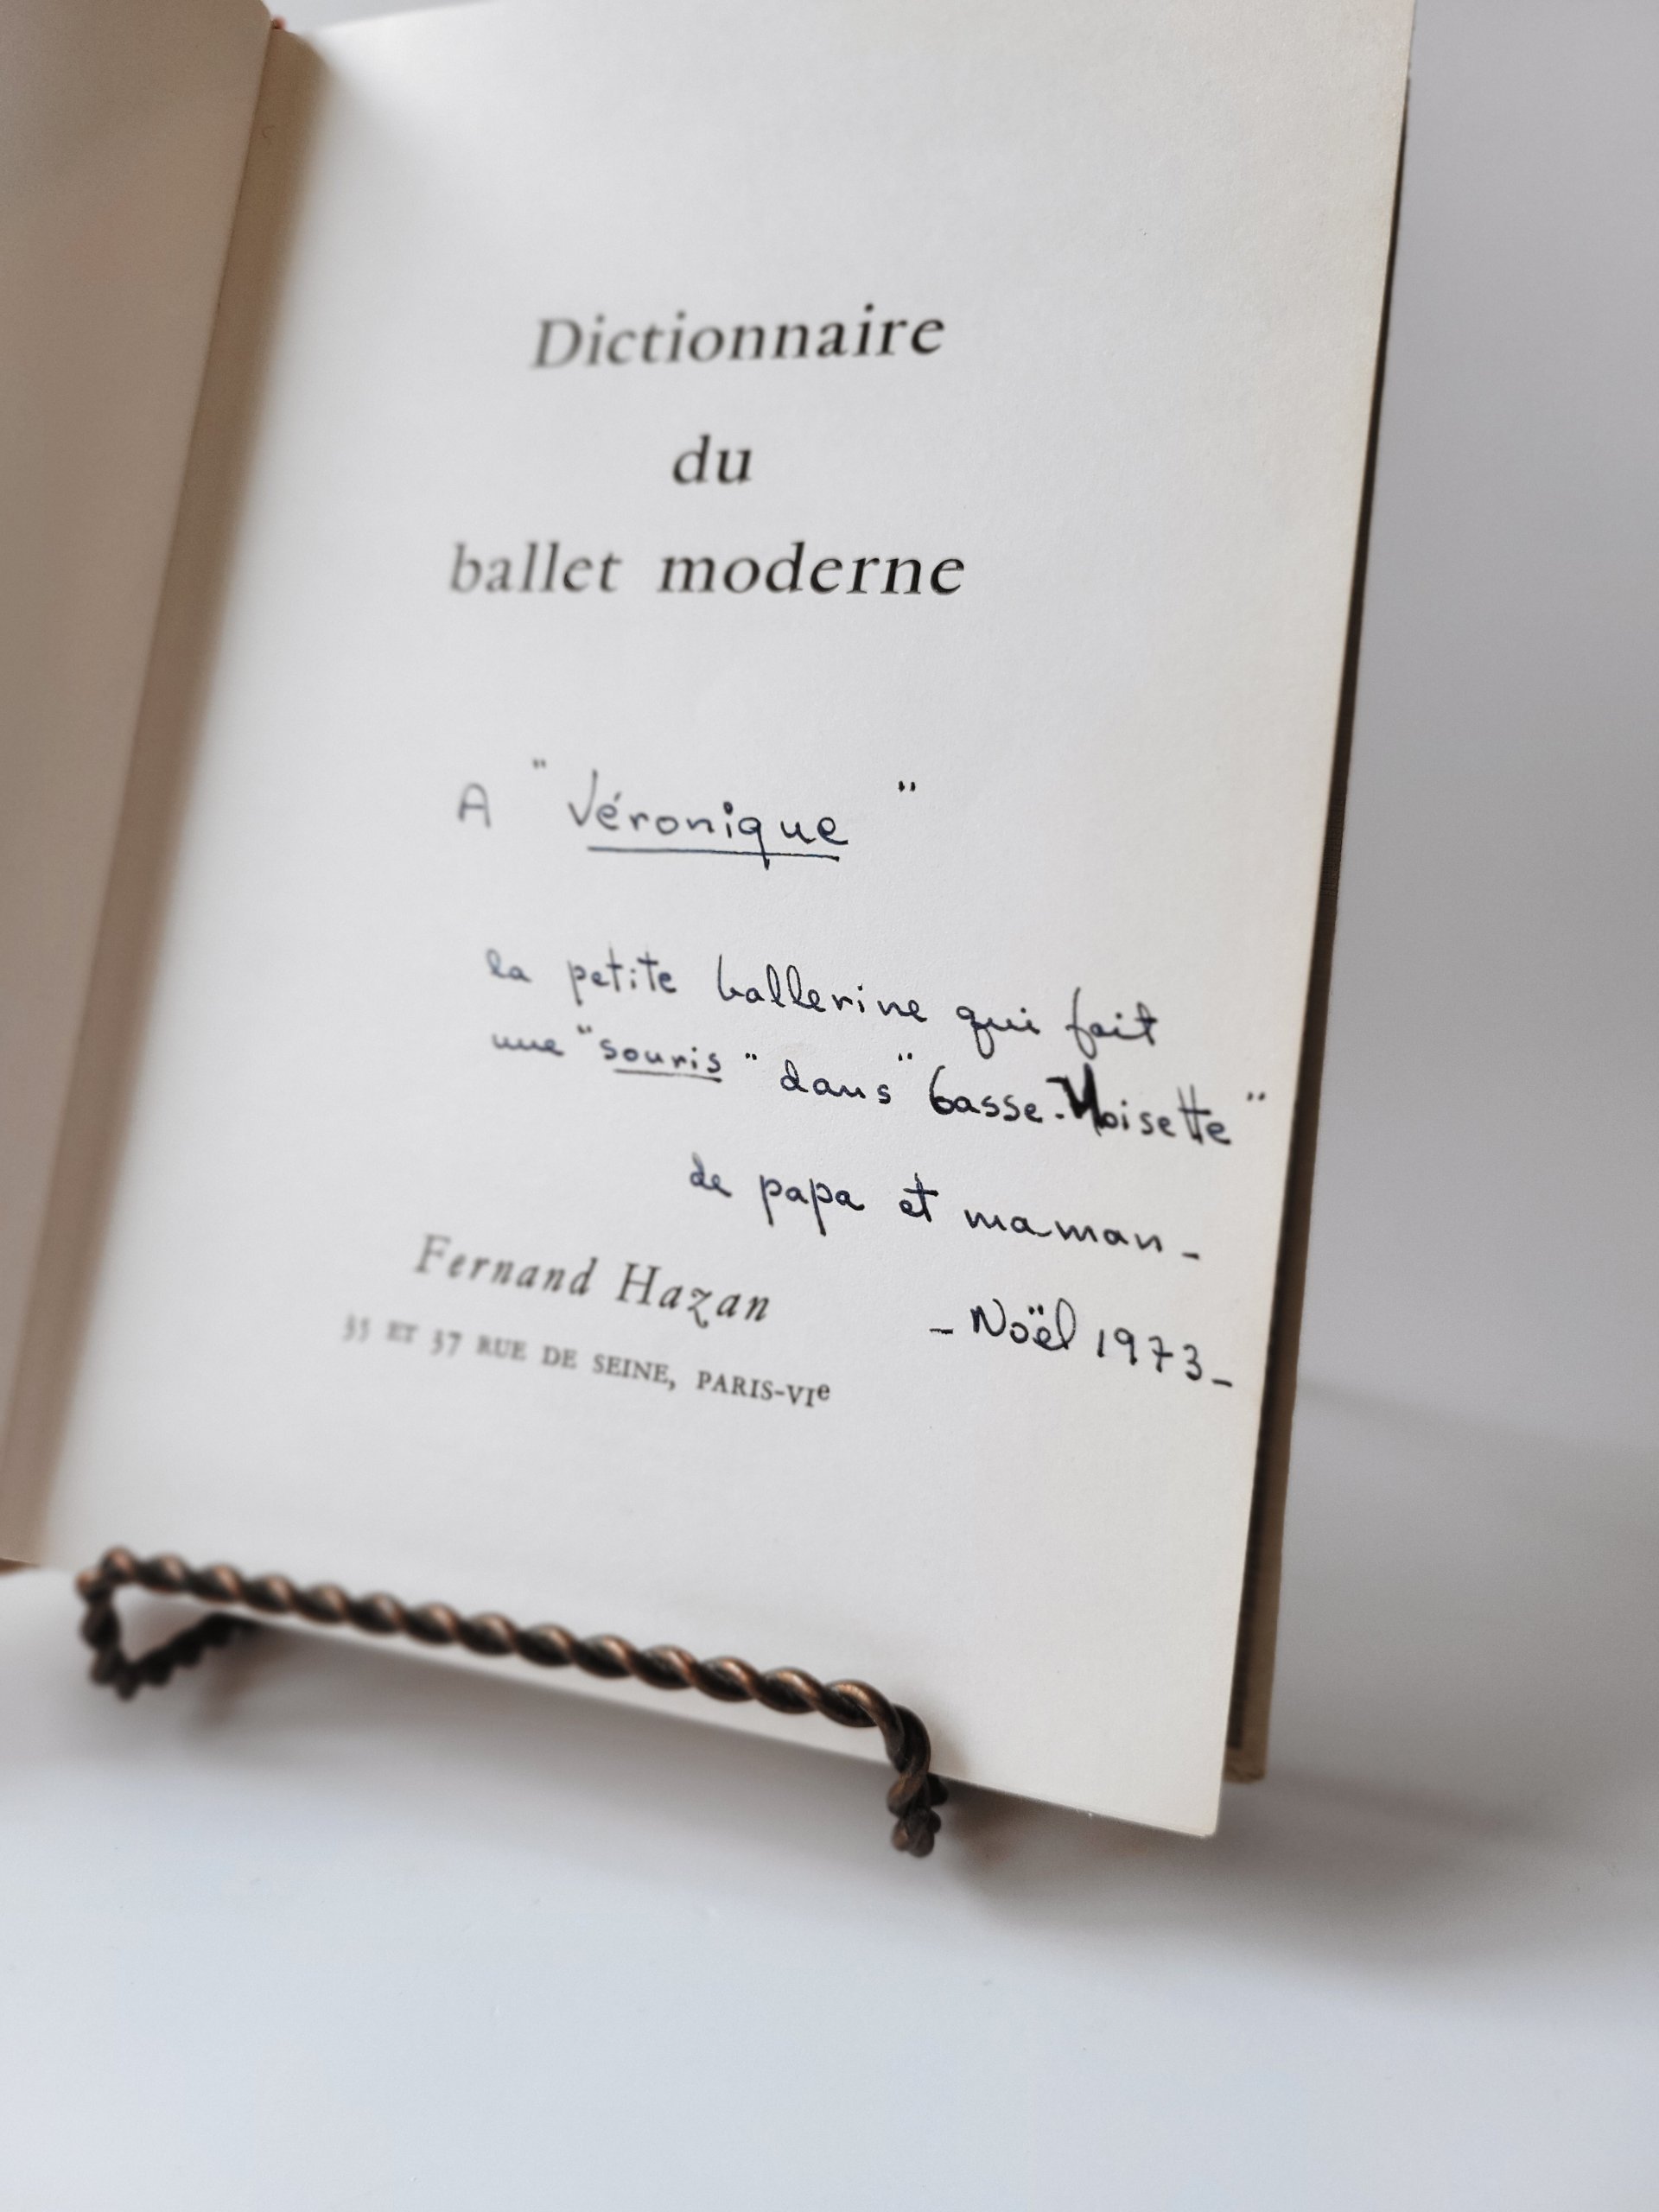 Dictionnaire
du
ballet moderne
A "Véronique"
la petite ballerine qui fait
une "souris" dans "Casse-Noisette"
de papa et maman -
Fernand Hazan
- Noël 1973 -
35 ET 37 RUE DE SEINE, PARIS-VIe